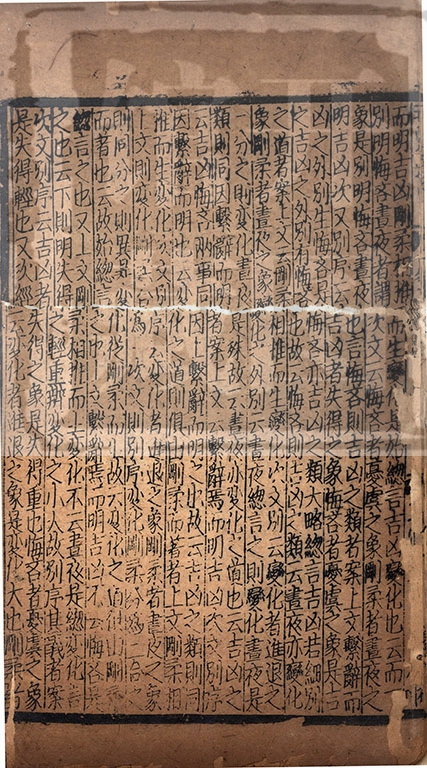 而明吉凶剛柔相推而生變化是始總言吉凶變化也云而
別明悔吝晝夜者謂次文云悔吝者憂虞之象剛柔者晝夜之
象是別明悔吝晝夜也言悔吝則吉凶之類者案上文繫辭而
明吉凶次又別序云吉凶者失得之象悔吝者憂虞之象是吉
凶之外別生悔吝是悔吝亦吉凶之類大略總言吉凶若細別
之吉凶之外別有悔吝也故云悔吝則吉凶之類云晝夜亦變化
之道者案上文云剛柔相推而生變化次文別云變化者進退之
象剛柔者晝夜之象變化之外別云晝夜總言之則變化晝夜是
一分之則變化晝夜是殊故云晝夜亦變化之道也云吉凶之
類則同因繫辭而明者案上文云繫辭焉而明吉凶次文別序
云吉凶悔吝兩事同因上繫辭而明之也故云吉凶之類則同
因繫辭而明也云變化之道則俱由剛柔而著者上文剛柔相
推而生變化次文別序云變化者進退之象剛柔者晝夜之象
上文則變化剛柔合為一次文則別序變化剛柔分為二合之
則同分之則異是變化從剛柔而生故云變化之道俱由剛柔
而著也云故始總言之也上文繫辭焉而明吉凶不云悔吝是
總言之也又上文剛柔相推而生變化不云晝夜是總變化
之也云下則明失得之輕重辨變化之小大故別序其義者案
次文別序云吉凶者失得之象是失得重也悔吝者憂虞之象
是失得輕也又次經云變化者進退之象是變化大也剛柔者